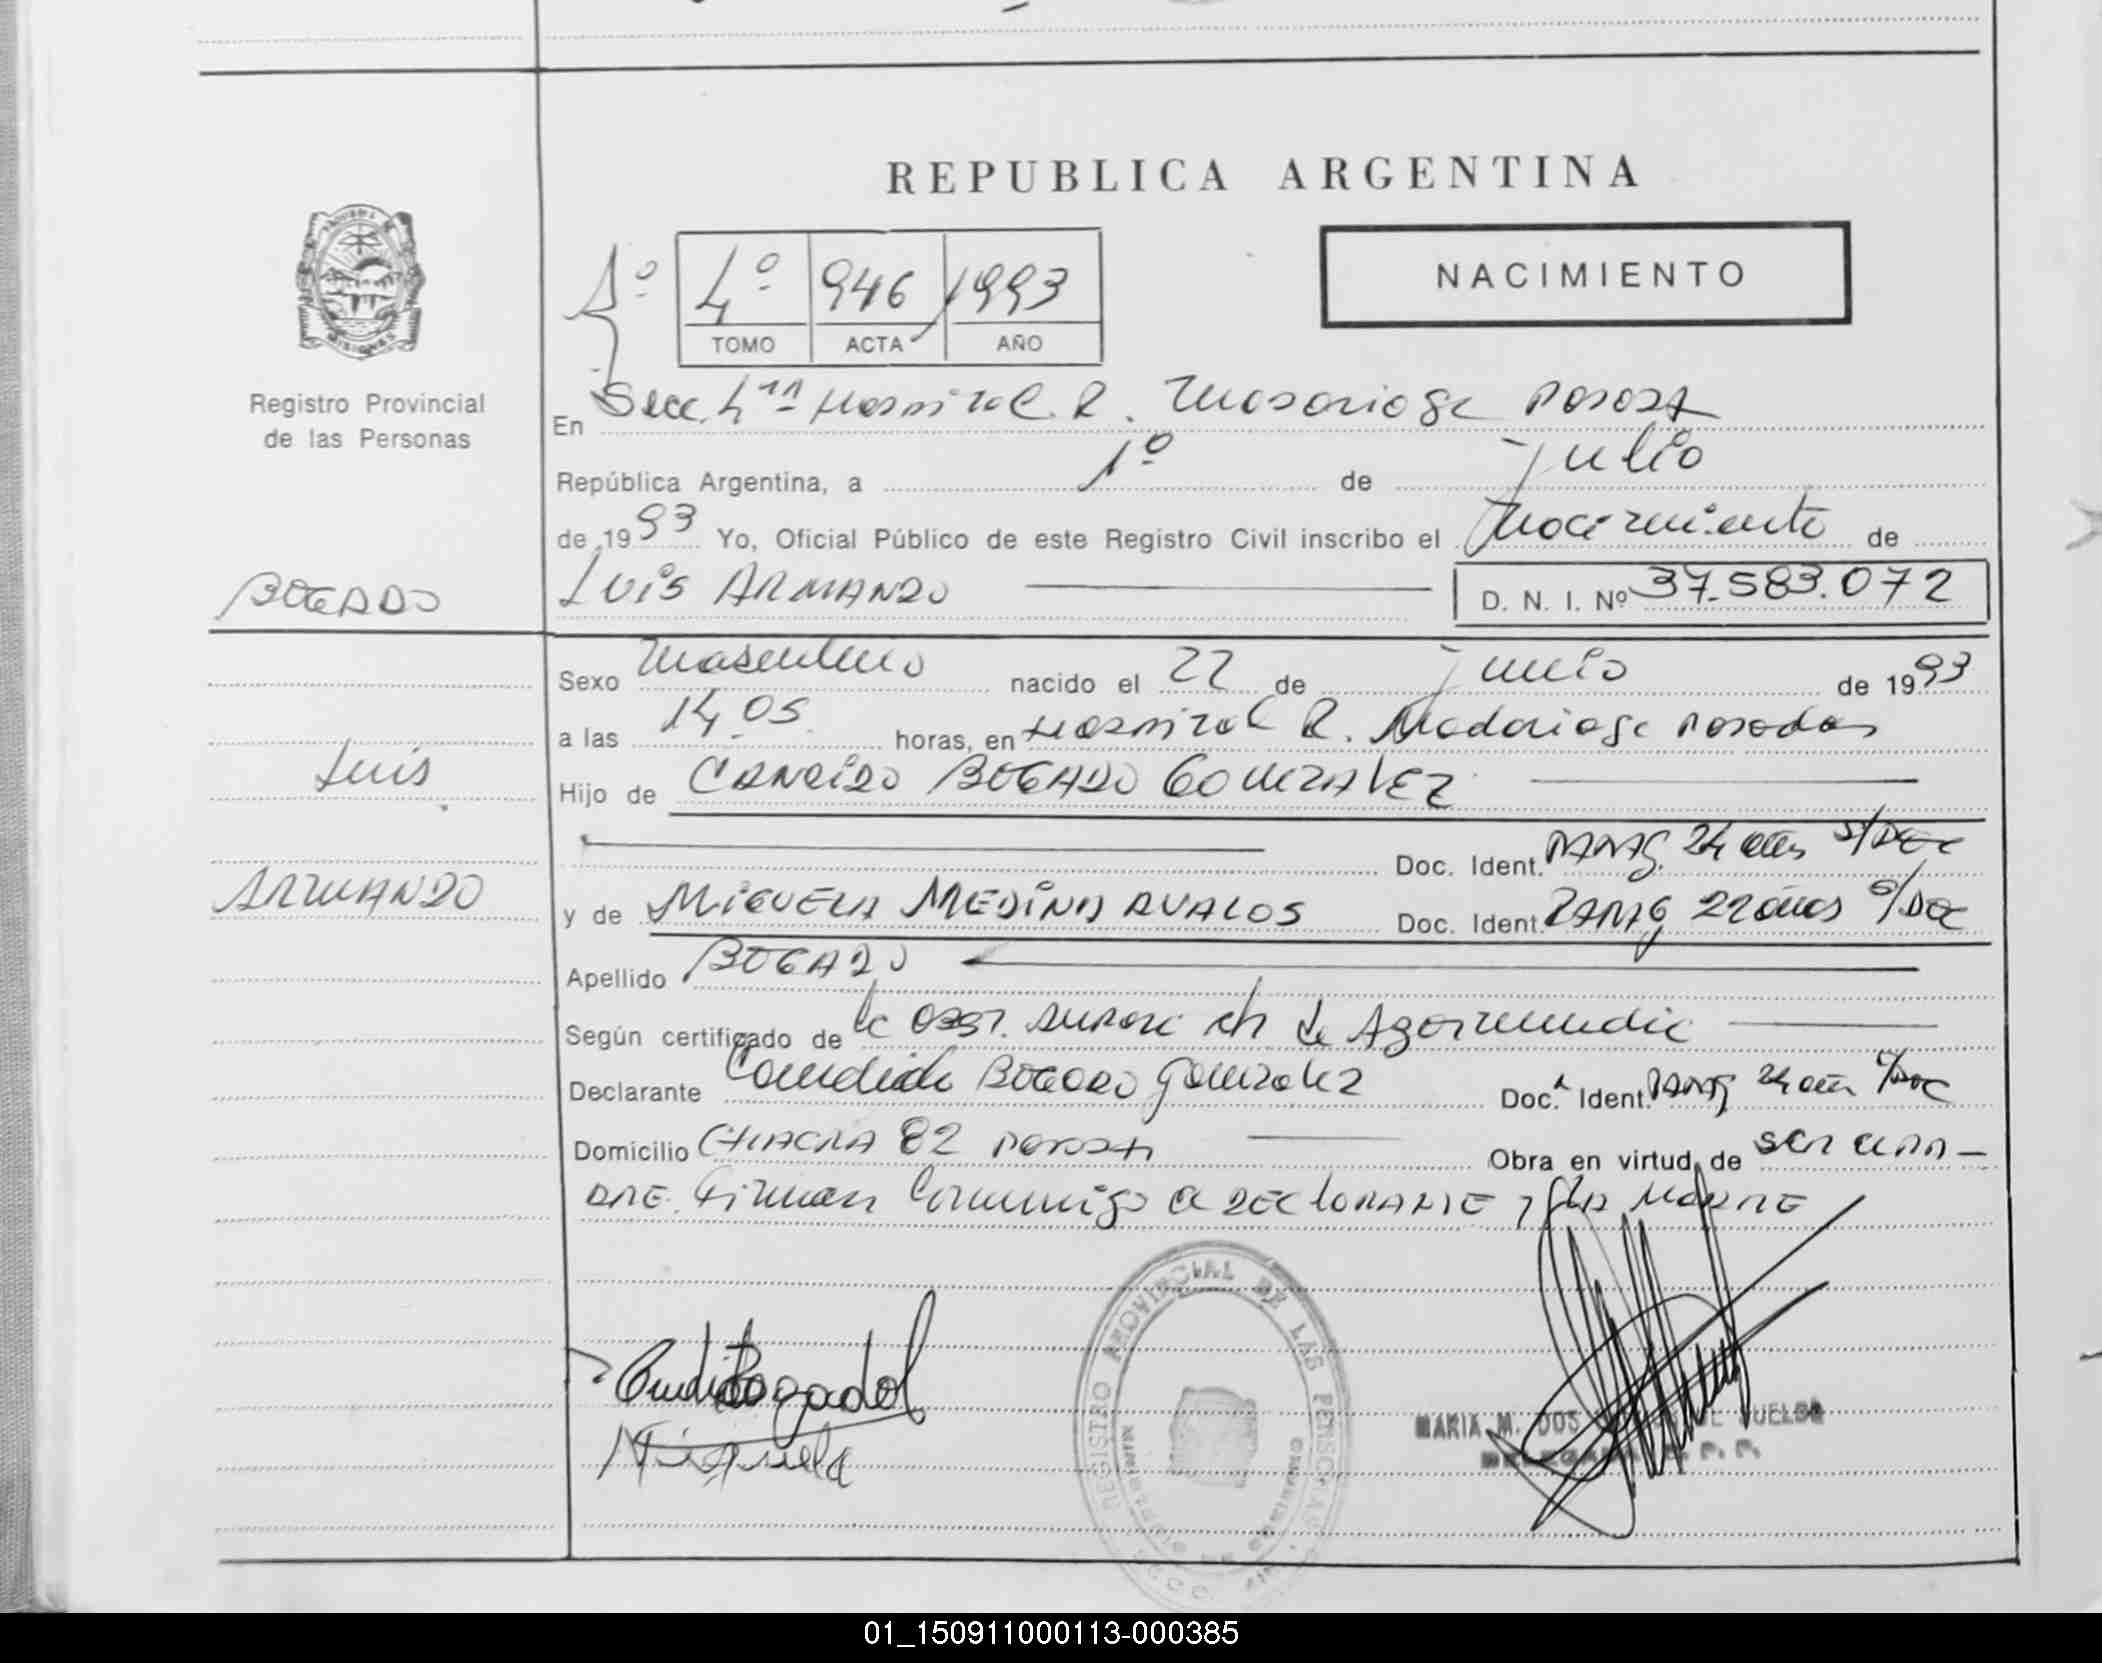 REPUBLICA ARGENTINA
NACIMIENTO
1º 4º 946 1993
TOMO ACTA AÑO
Registro Provincial
de las Personas
En Secc. 4ta Hospital R. Madariaga
República Argentina, a 1º de julio
de 1993 Yo, Oficial Público de este Registro Civil inscribo el Nacimiento de
BOGADO
LUIS ARMANDO D. N. I. Nº 37.583.072
Sexo Masculino nacido el 22 de junio de 1993
a las 14,05 horas, en Hospital R. Madariaga Posadas
Luis
Hijo de CANDIDO BOGADO GONZALEZ
Doc. Ident. PARAG. 24 años S/DOC
ARMANDO
y de MIGUELA MEDINA AVALOS Doc. Ident. PARAG 22 años S/DOC
Apellido BOGADO
Según certificado de la Obst. de
Declarante Candido BOGADO Gonzalez Doc. Ident. PARAG 24 años S/DOC
Domicilio CHACRA 82 Obra en virtud de ser el PA-
DRE. Firman Conmigo el DECLARANTE y LA MADRE
Bogado
Miguela
REGISTRO PROVINCIAL DE LAS PERSONAS
MARIA M. DOS
01_150911000113-000385